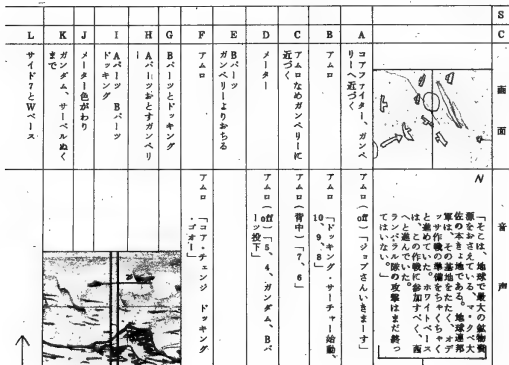 S
C
画面
音声
N
「そこは、地球で最大の鉱物資
源をおさえている、マ・クベ大
佐の本きょ地である。地球連邦
軍は、その基地をたたく、オデ
ッサ作戦の準備をちゃくちゃく
と進めていた。ホワイトベース
は、この作戦に参加すべく、西
へと進んでいた。
ランバラル隊の攻撃はまだ終っ
てはいない。
A
コアファイター、ガンペ
リーへ近づく
アムロ(off)「ジョブさんいきまーす」
B
アムロ
アムロ 「ドッキング・サーチャー始動、
10、9、8」
C
アムロなめガンペリーに
近づく
アムロ(背中)「7、6」
D
メーター
アムロ(off)「5、4、ガンダム、Bパ
ーツ投下」
E
Bパーツ
ガンペリーよりおちる
F
アムロ
アムロ 「コア・チェンジ ドッキング
・ゴオー」
G
Bパーツとドッキング
H
Aパーツおとすガンペリ
ー
I
Aパーツ Bパーツ
ドッキング
J
メーター色がわり
K
ガンダム、サーベルぬく
まで
L
サイド7とWベース